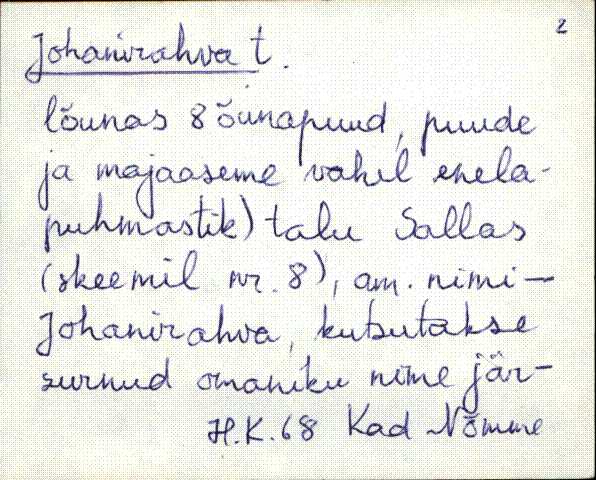 2
Johanirahva t.
lõunas 8 õunapuud, puude
ja majaaseme vahel enela-
puhmastik) talu Sallas
(skeemil nr. 8), am. nimi -
Johanirahva, kutsutakse
surnud omaniku nime jär-
H.K. 68 Kad Nõmme